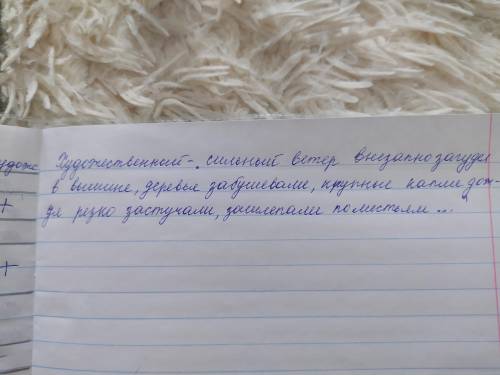 удож Художественный - сильный ветер внезапно загудел
в вышине, деревья забушевали, крупные капли дож-
дя резко застучали, зашлепали по листьям ...
+
+